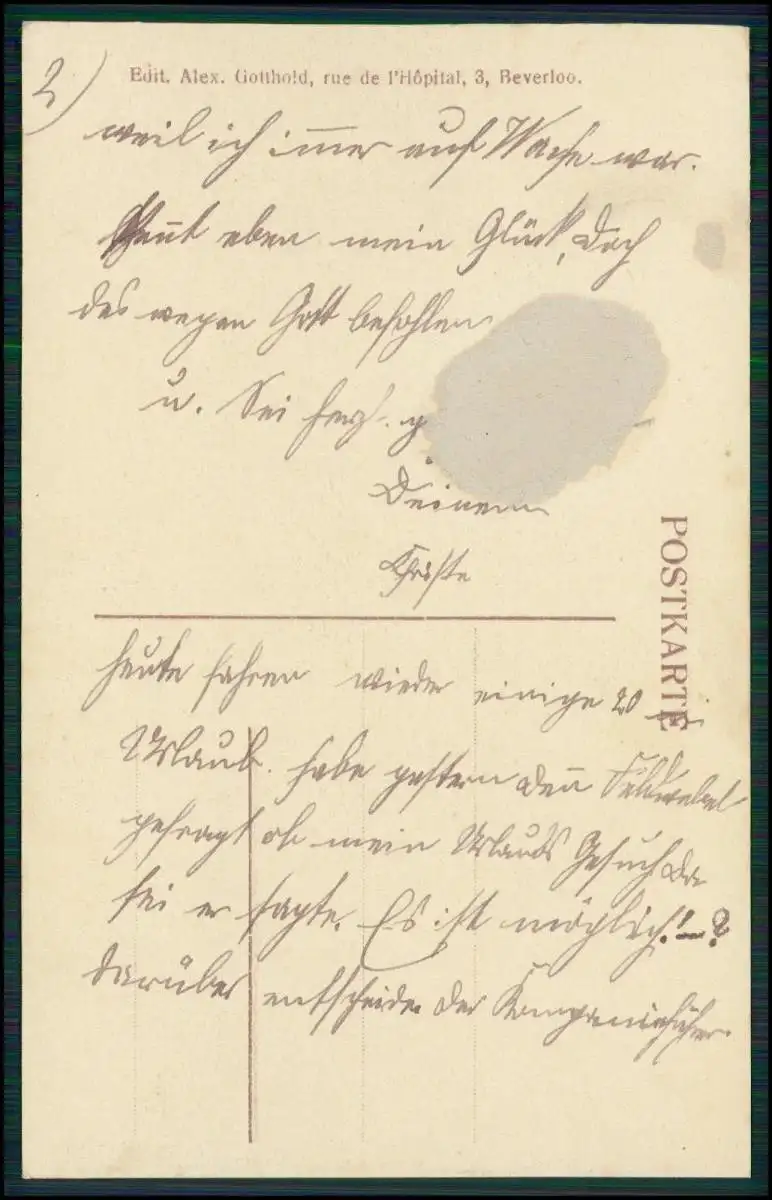 2)
Edit. Alex. Gotthold, rue de l'Hôpital, 3, Beverloo.
weil ich immer auf Wache war.
eben mein Glück, doch
deswegen Gott befohlen
u. Sei herzl. g
Deinem
POSTKARTE
heute fahren wieder einige 20 in
Urlaub. habe gestern den Feldwebel
gefragt ob mein Urlaubs Gesuch da
sei er sagte. Es ist möglich! – ?
darüber entscheide der Kompanieführer.